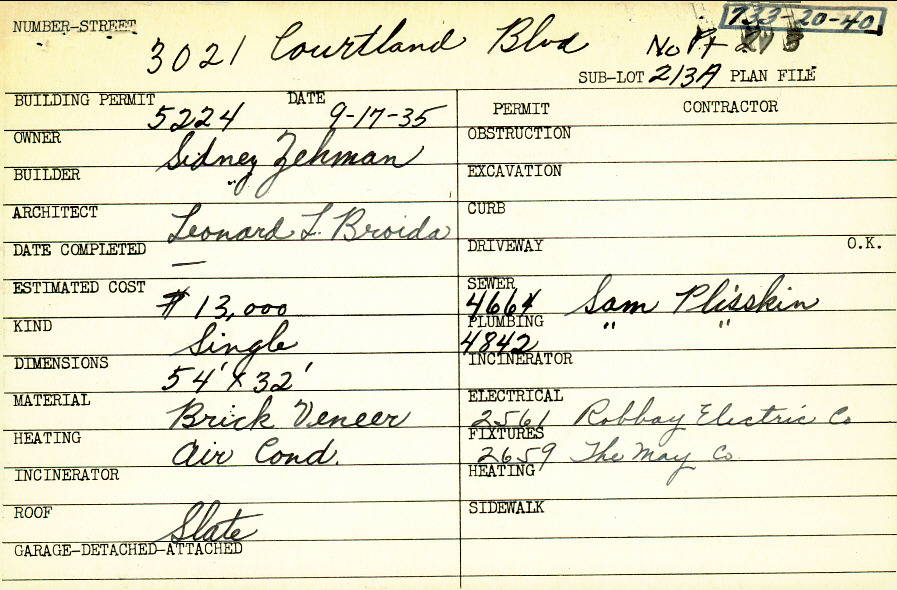 NUMBER-STREET 733-20-40
3021 Courtland Blvd No Pt 213
SUB-LOT 213A PLAN FILE
BUILDING PERMIT 5224 DATE 9-17-35
OWNER Sidney Zehman
BUILDER "
ARCHITECT Leonard L. Broida
DATE COMPLETED —
ESTIMATED COST $13,000
KIND Single
DIMENSIONS 54' x 32'
MATERIAL Brick Veneer
HEATING Air Cond.
INCINERATOR
ROOF Slate
GARAGE-DETACHED-ATTACHED
PERMIT CONTRACTOR
OBSTRUCTION
EXCAVATION
CURB
DRIVEWAY O.K.
SEWER 4664 Sam Plisskin
PLUMBING 4842 " "
INCINERATOR
ELECTRICAL 2561 Robbay Electric Co
FIXTURES 2659 The May Co
HEATING
SIDEWALK